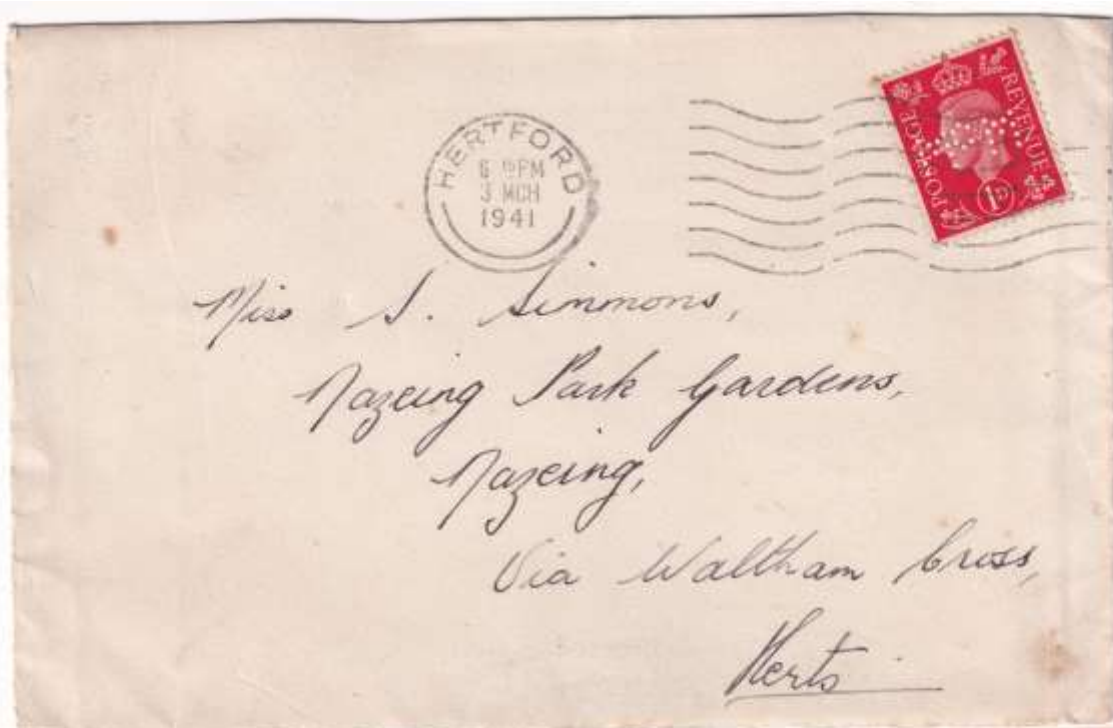 HERTFORD
PM
3 MCH
1941
POSTAGE REVENUE
1D
Miss S. Simmons,
Nazeing Park Gardens,
Nazeing,
Via Waltham Cross,
Herts